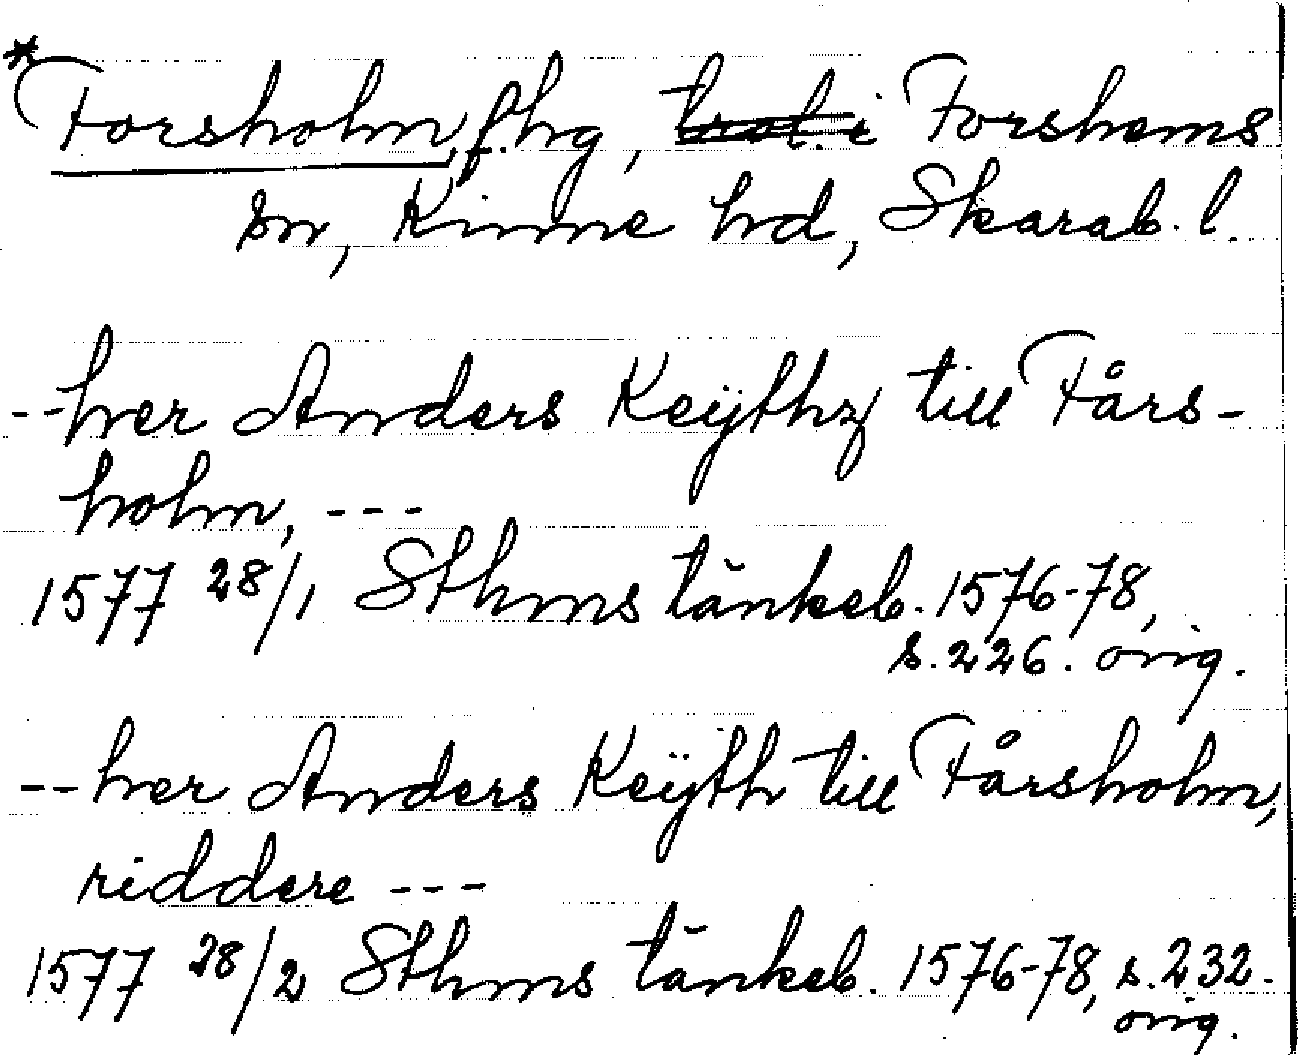 *Forsholm, f. hg, trol. i Forshems
sn, Kinne hd, Skarab. l.
--her Anders Keÿthz till Fårs-
holm, ---
1577 28/1 Sthms tänkeb. 1576-78,
s. 226. orig.
--her Anders Keÿth till Fårsholm,
riddere ---
1577 28/2 Sthms tänkeb. 1576-78, s. 232.
orig.